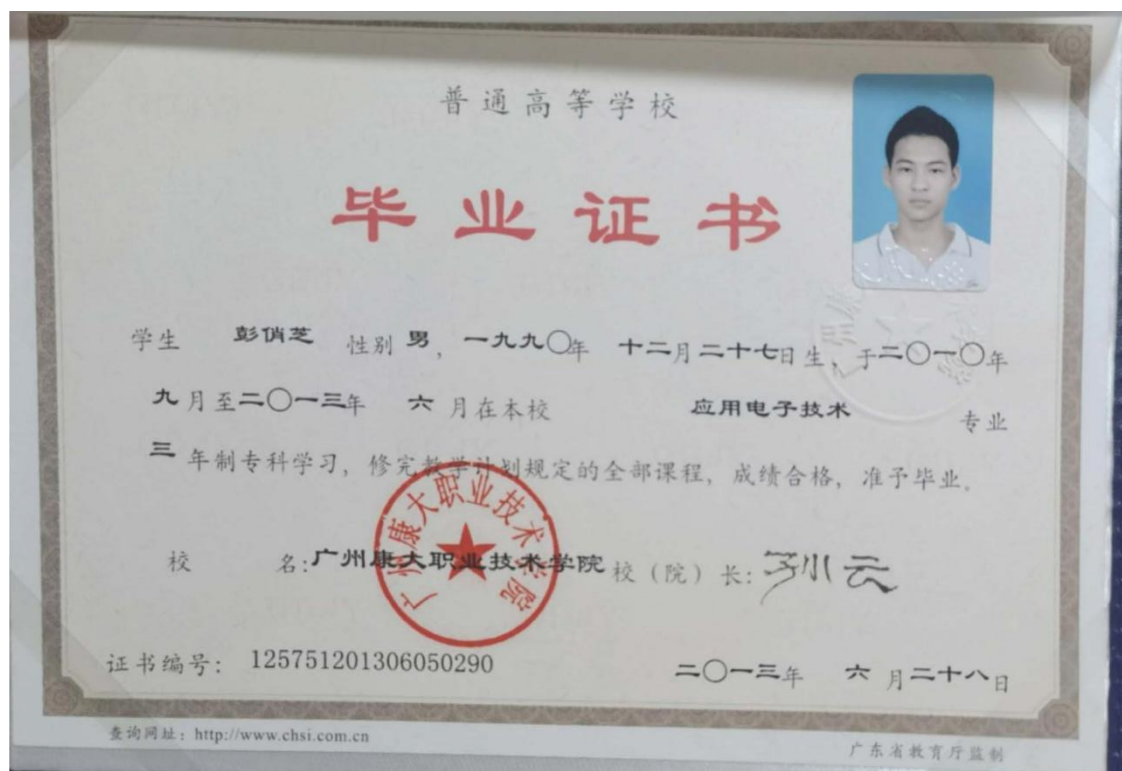 普通高等学校
毕业证书
学生 彭俏芝 性别 男，一九九〇年 十二月二十七日生，于二〇一〇年
九月至二〇一三年 六月在本校 应用电子技术 专业
三年制专科学习，修完教学计划规定的全部课程，成绩合格，准予毕业。
广州康大职业技术学院
校 名：广州康大职业技术学院 校（院）长：孙云
证书编号：125751201306050290 二〇一三年 六月二十八日
查询网址：http://www.chsi.com.cn 广东省教育厅监制